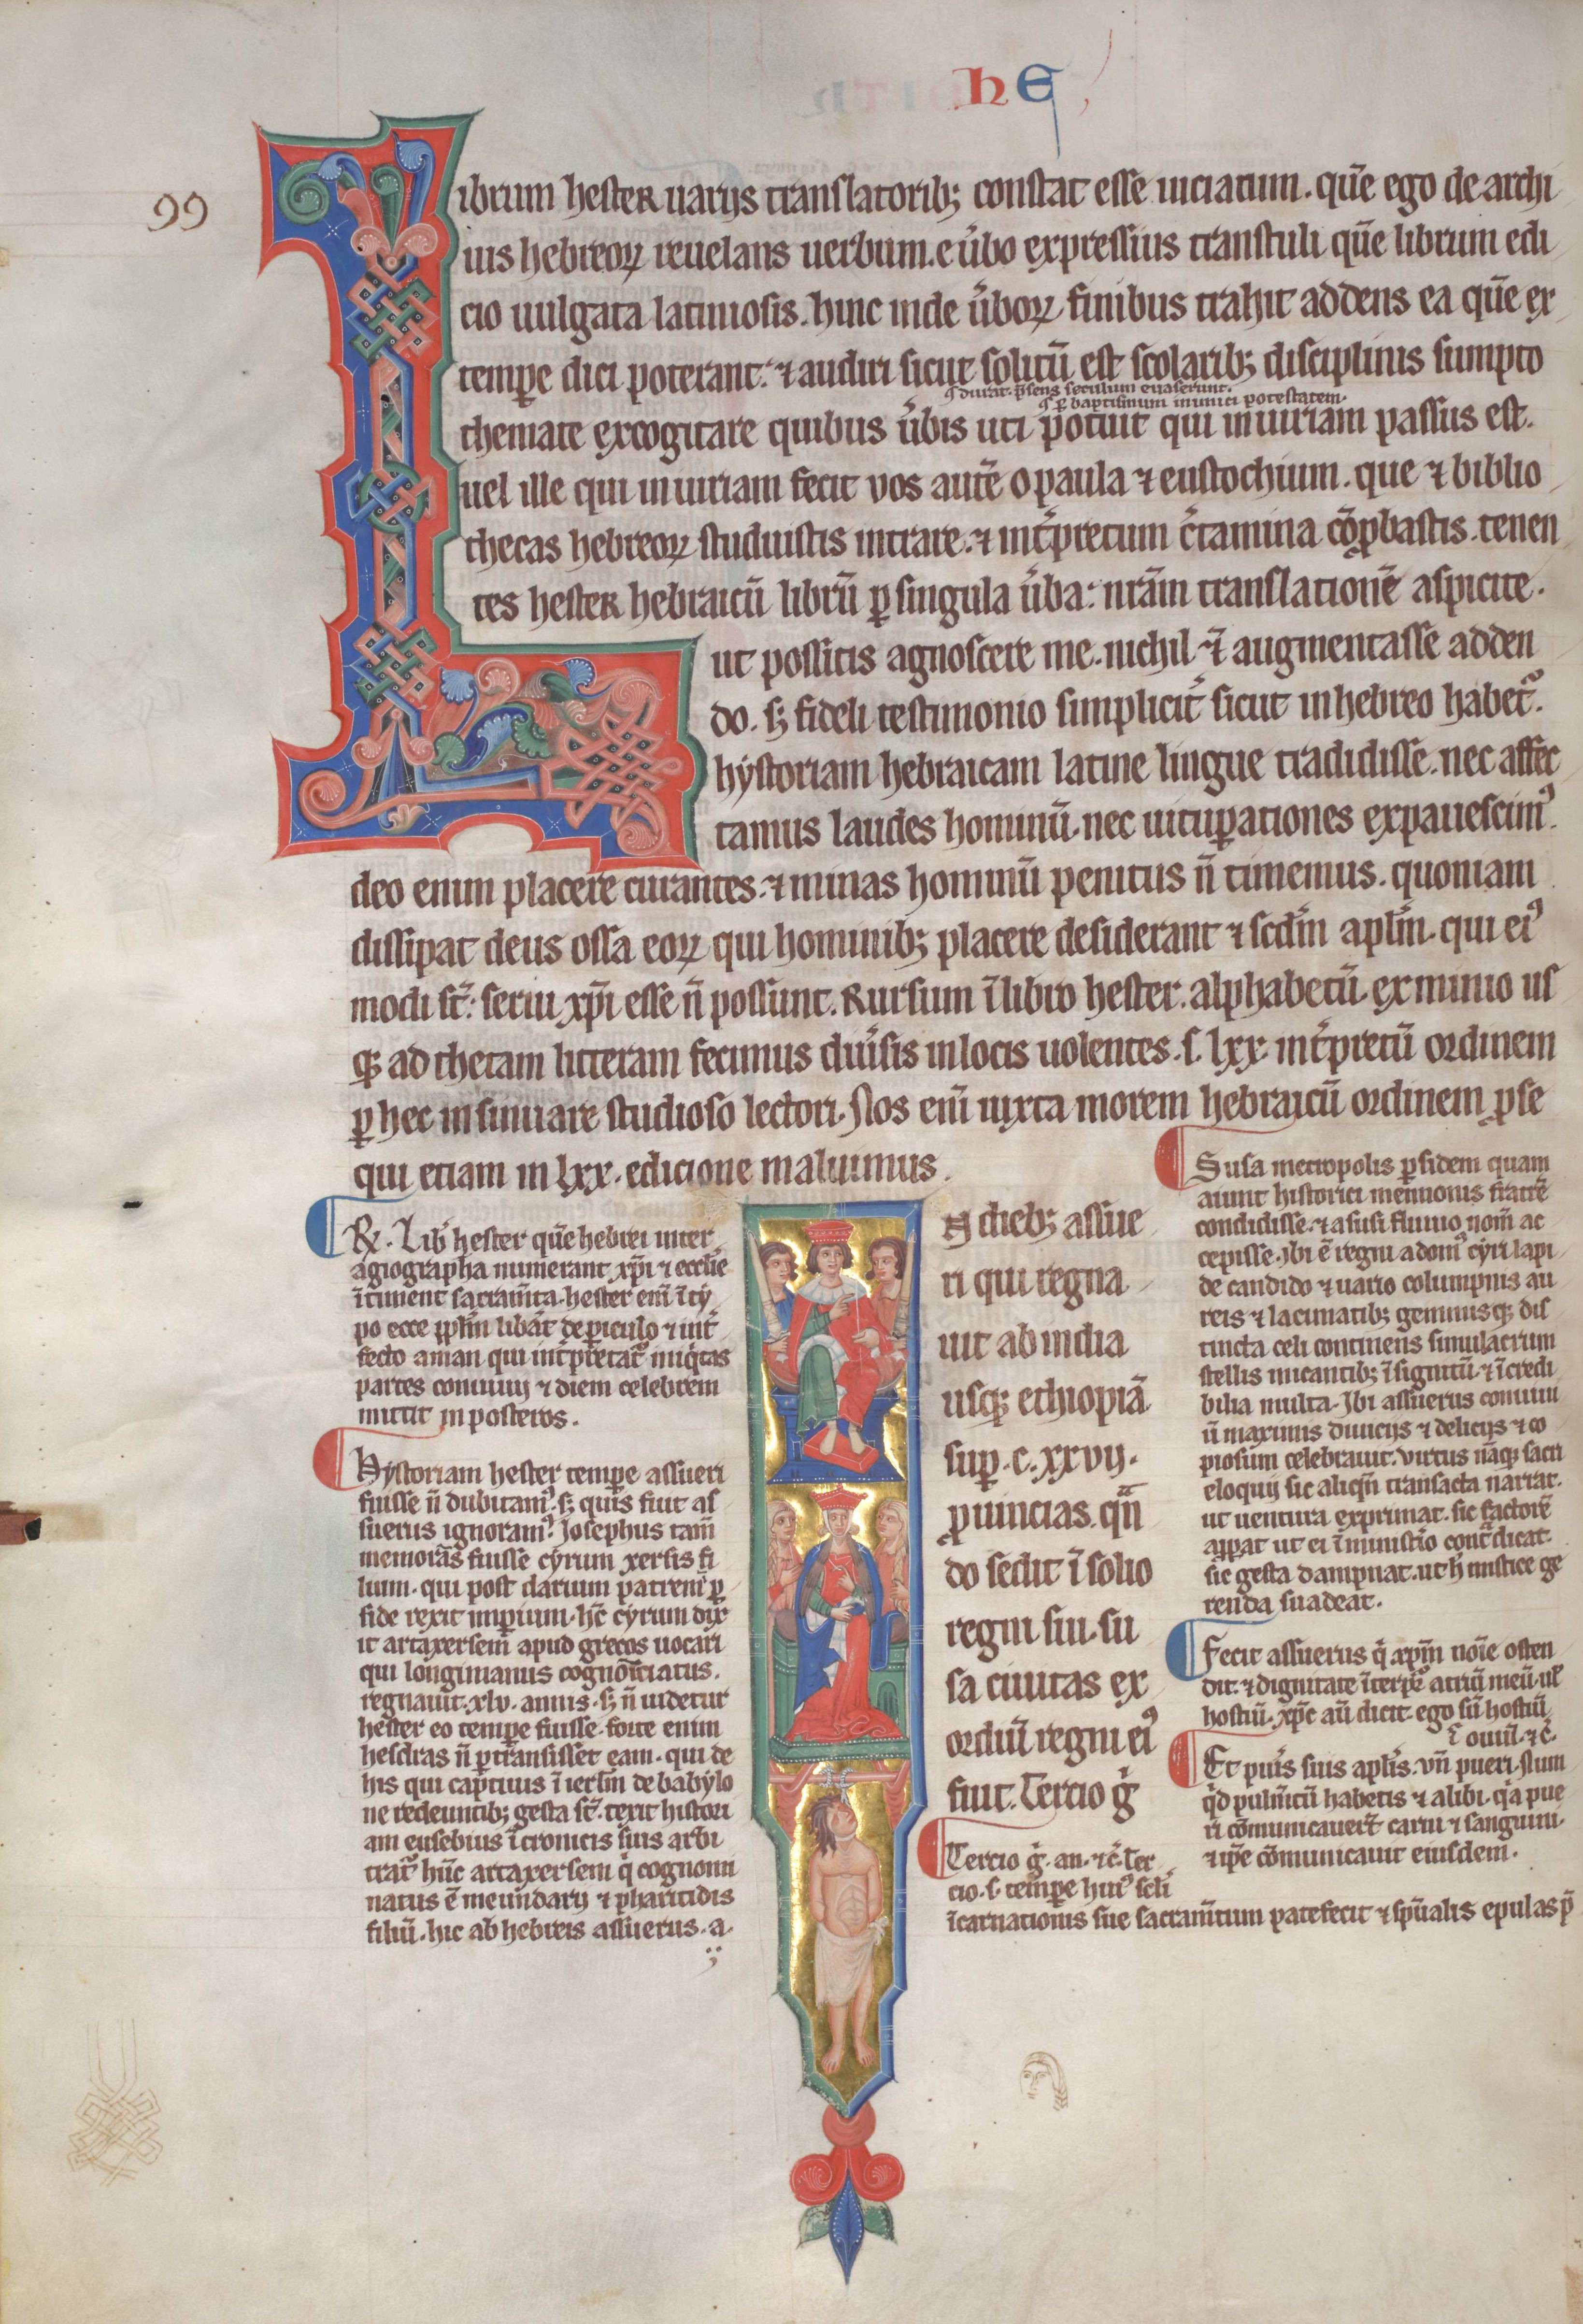 hE
99
Librum hester uarijs translatorib; constat esse uiciatum. que͂ ego de archi
uis hebreoꝝ reuelans uerbum. e u͛bo expressius transtuli que͂ librum edi
cio uulgata latinosis. hinc inde u͛boꝝ finibus trahit addens ea que͂ ex
temꝑe dici poterant. ⁊ audiri sicut solitu͂ est scolarib; disciplinis sumpto
q̇ durat. p͂sens seculum euaserunt.
q̇ ꝑ baptismum inimici potestatem.
themate excogitare quibus u͛bis uti potuit qui iniuriam passus est.
uel ille qui iniuriam fecit vos aute͂ o paula ⁊ eustochium. que ⁊ biblio
thecas hebreoꝝ studuistis intrare. ⁊ int͛pretum c͛tamina co͂ꝓbastis. tenen
tes hester hebraicu͂ libru͂ ꝑ singula u͛ba: nr͂am translatione͂ aspicite.
ut possitis agnoscere me. nichil ⁊͂ augmentasse adden
do. s; fideli testimonio simplicit͛ sicut in hebreo habet᷑.
hẏstoriam hebraicam latine lingue tradidisse. nec affec
tamus laudes hominu͂. nec uituꝑationes expauescimꝰ.
deo enim placere curantes. ⁊ minas hominu͂ penitus n͂ timemus. quoniam
dissipat deus ossa eoꝝ qui hominib; placere desiderant ⁊ scd͛m apl͛m. qui eiꝰ
modi st͂: serui xp͂i esse n͂ possunt. Rursum i͂ libro hester. alphabetu͂. ex minio us
q; ad thetam litteram fecimus diu͛sis in locis uolentes. s. lxx. int͛pretu͂ ordinem
ꝑ hec insinuare studioso lectori. Nos eni͂ iuxta morem hebraicu͂ ordinem ꝓse
qui etiam in lxx. edicione maluimus.
R͛. Lib͛ hester que͂ hebrei inter
agiographa numerant. xp͂i ⁊ eccl͂ie
i͂tinent sacram͂ta. hester eni͂ i͂ tẏ
po ecc͂e ppl͂m liberat de ꝑiculo ⁊ int͛
fecto aman qui int͛pretat᷑ iniq͛tas
partes conuiuij ⁊ diem celebrem
mittit in posteros.
Hẏstoriam hester temꝑe assueri
fuisse n͂ dubitamꝰ. s; quis fuit as
suerus ignoramꝰ. Josephus tam͂
memorat fuisse cẏrum xersis fi
lium. qui post darium patrem ꝑ
side rexit imꝑium. hc͂ cẏrum dix
it artaxersem apud grecos uocari
qui longimanus cogno͂iatus.
regnauit. xlv. annis. s; n͂ uidetur
hester eo temꝑe fuisse. forte enim
hesdras n͂ ꝑtransisset eam. qui de
his qui captiuis i͂ ierl͂m de babẏlo
ne redeuntib; gesta st͂. texit histori
am eusebius i͂ cronicis suis arbi
trat᷑ hu͂c artaxersem q͛ cognomi
natus e͂ meundarij ⁊ pharitidis
filiu͂. hic ab hebreis assuerus. a.
IN dieb; assue
ri qui regna
uit ab india
usq; ethiopia͂
suꝑ. c. xxvij.
ꝓuincias. qn͂
do sedit i͂ solio
regni sui. su
sa ciuitas ex
ordiu͂ regni eiꝰ
fuit. Tercio g͛
Tercio g͛. an. ⁊c͂. ter
cio. s. temꝑe huiꝰ scl͛i
i͂carnationis sue sacram͂tum patefecit ⁊ sp͂ualis epulas p͂
Susa metropolis ꝑsidem quam
aiunt historici mennonis fratre͂
condidisse. ⁊ a susi fluuio nom͂ ac
cepisse. Jbi e͂ regia domꝰ cẏri lapi
de candido ⁊ uario columpnis au
reis ⁊ lacunarib; gemmisq; dis
tincta celi continens simulacrum
stellis micantib; i͂signitu͂. ⁊ i͂credi
bilia multa. Jbi assuerus conuiui
u͂ maximis diuicijs ⁊ delicijs ⁊ co
piosum celebrauit. virtus na͂q; sacri
eloquij sic aliqn͂ transacta narrat.
ut uentura exprimat. sic factore͂
apꝓbat ut ei i͂ministio contradicat.
sic gesta dampnat. ut h͛ mistice ge
renda suadeat.
Fecit assuerus q͛ xp͂m no͂ie osten
dit. ⁊ dignitate i͂terp͂r atriu͂ meu͂. ul͛
hostiu͂. xp͂c au͂ dicit. ego su͂ hostiu͂
ouiu͂. ⁊c͂.
Et pu͛is suis apl͛is. vn͂ pueri. Num
q͛d pulm͂tu͂ habetis ⁊ alibi. q͛a pue
ri co͂municauer͂t carni ⁊ sanguini.
⁊ ip͂e co͂municauit eiusdem.